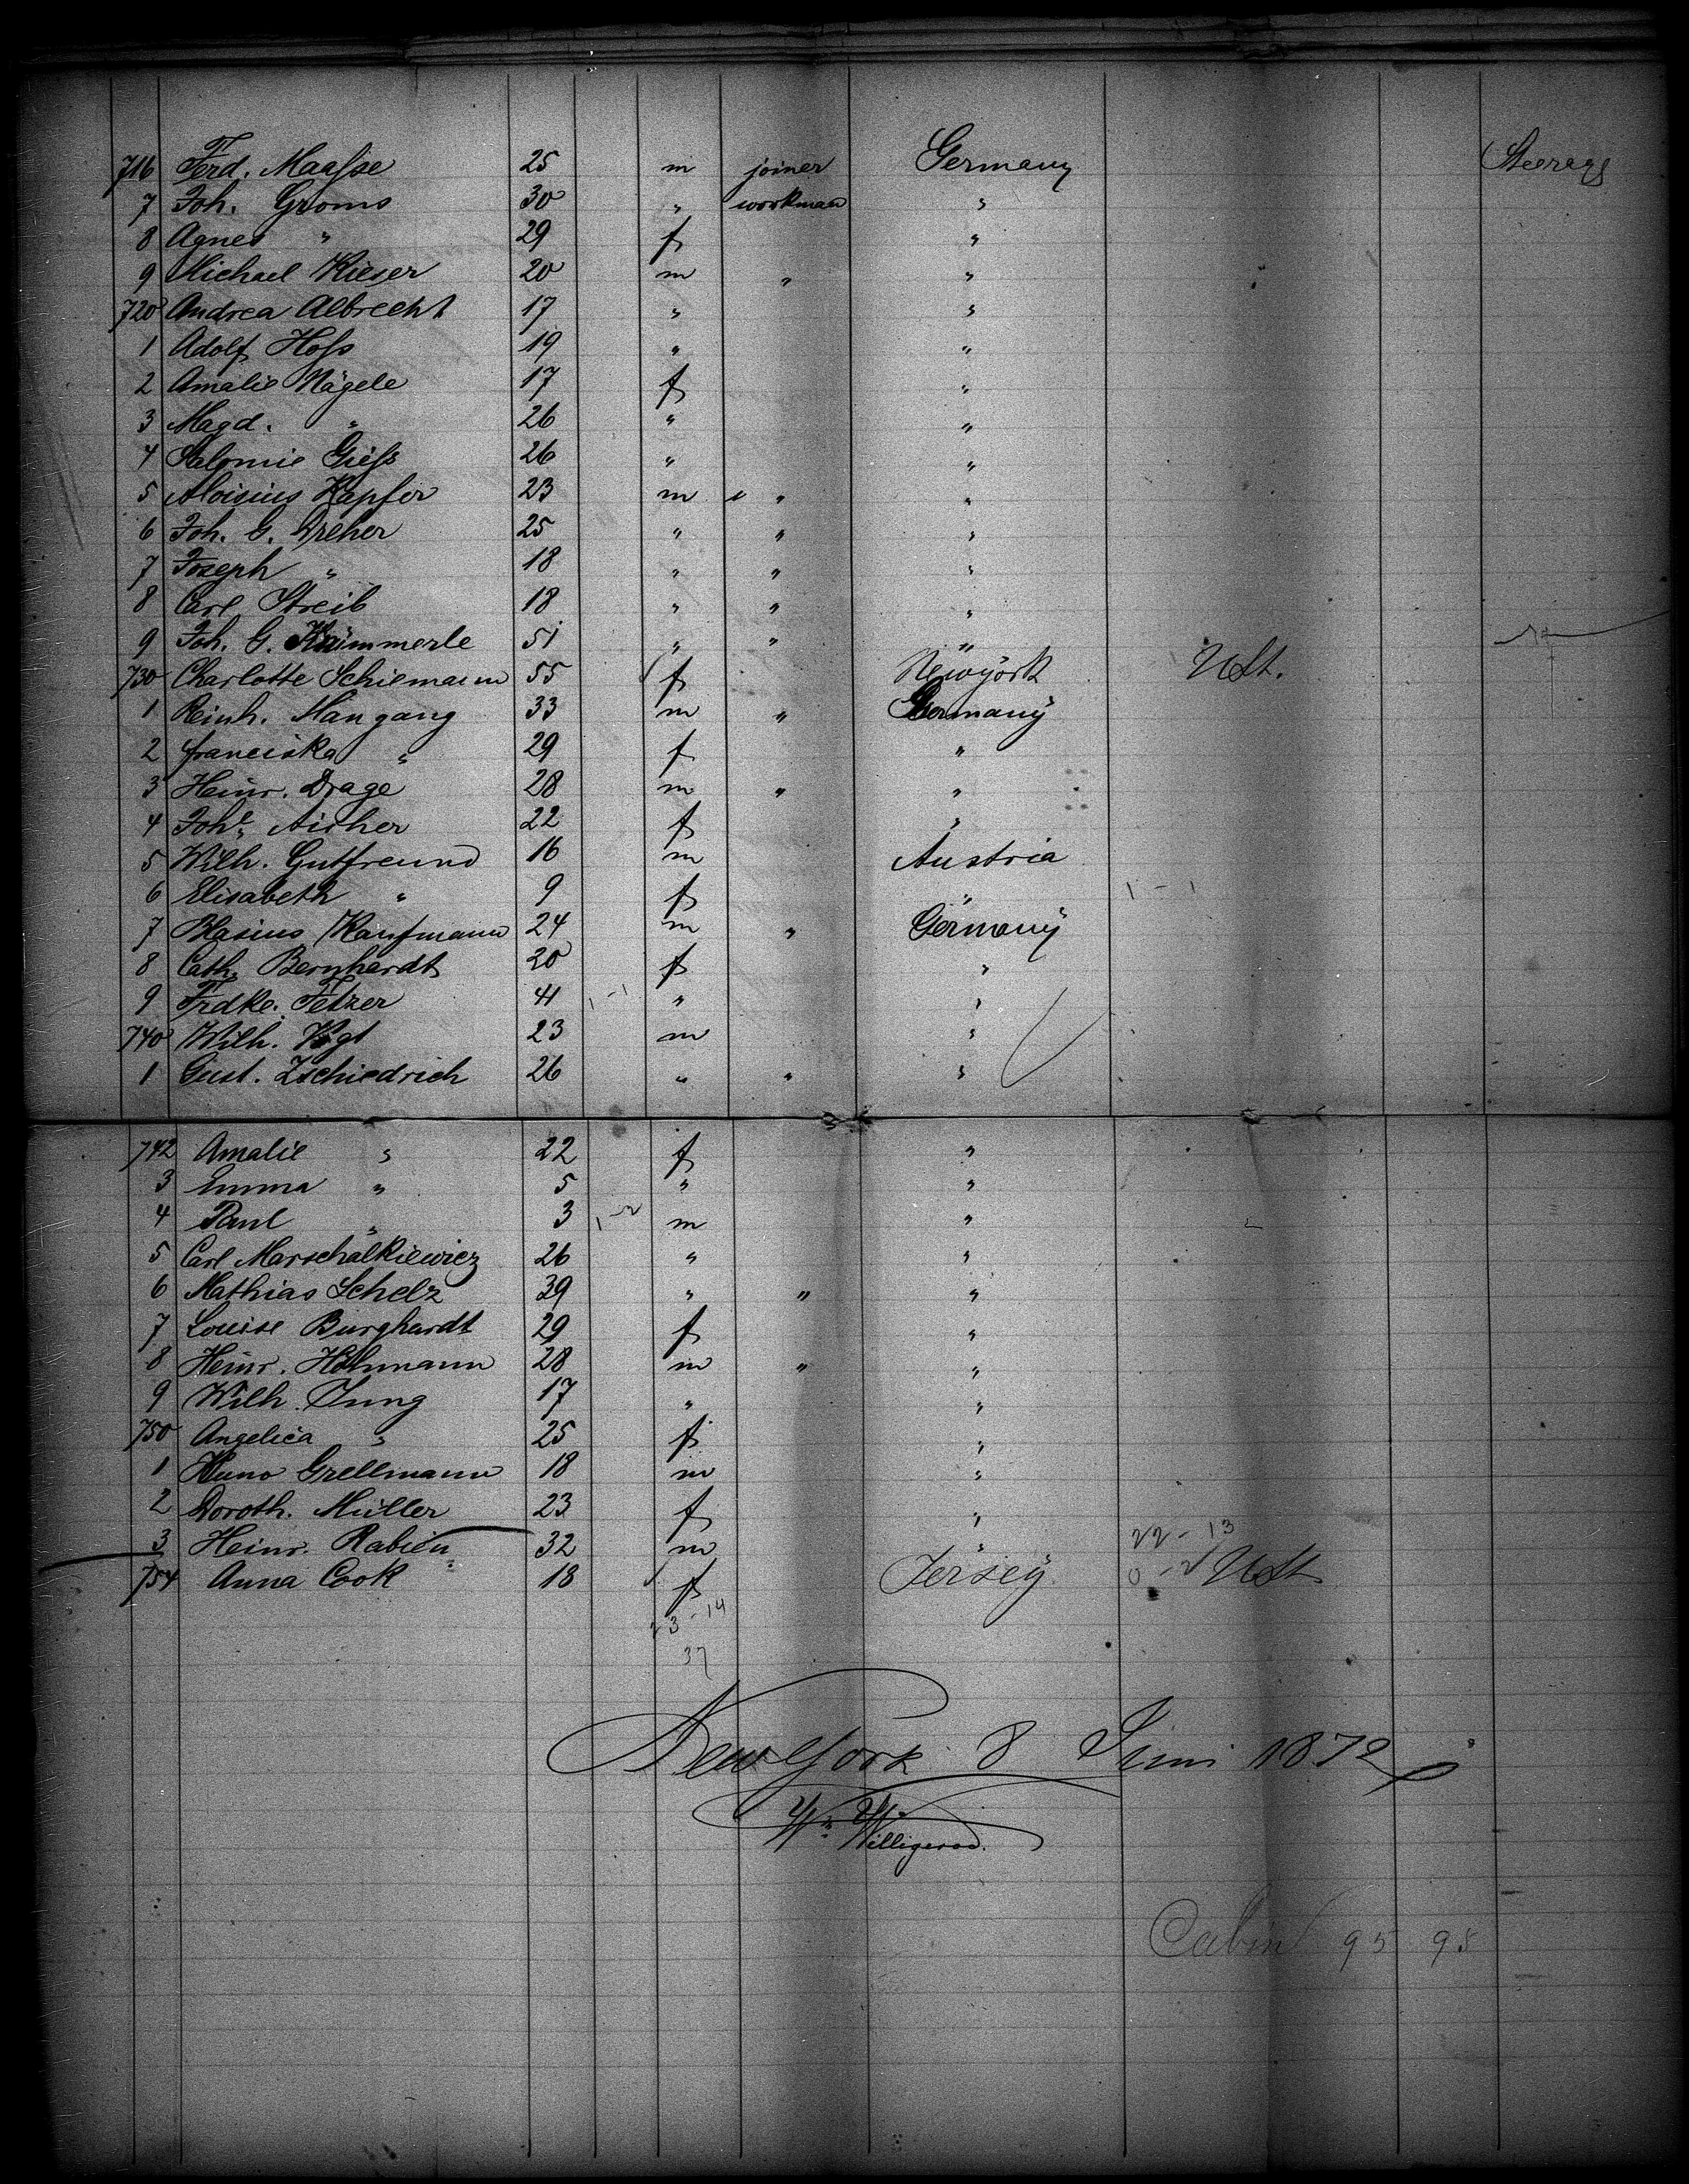 716 Ferd. Maaſse 25 m joiner Germany Steerage
7 Joh. Groms 30 " workman "
8 Agnes " 29 f "
9 Michael Kieser 20 m " "
720 Andrea Albrecht 17 " "
1 Adolf Hoſs 19 " "
2 Amalie Nägele 17 f "
3 Magd. " 26 " "
4 Salomie Gieſs 26 " "
5 Aloisius Kapfer 23 m " "
6 Joh. G. Dreher 25 " " "
7 Joseph " 18 " " "
8 Carl Streib 18 " " "
9 Joh. G. Kümmerle 51 " " "
730 Charlotte Schiemann 55 f Newyork USt.
1 Reinh. Mangang 33 m " Germany
2 Franciska " 29 f "
3 Heinr. Drage 28 m " "
4 Johe. Aicher 22 f "
5 Wilh. Gutfreund 16 m Austria
6 Elisabeth " 9 f " 1 - 1
7 Blasius Kaufmann 24 m " Germany
8 Cath. Bernhardt 20 f "
9 Frdke. Fetzer 41 1 - 1 " "
740 Wilh. Vogt 23 m "
1 Gust. Zschiedrich 26 " " "
742 Amalie " 22 f "
3 Emma " 5 " "
4 Paul " 3 1 - 2 m "
5 Carl Marschalkiewicz 26 " "
6 Mathias Schelz 39 " " "
7 Louise Burghardt 29 f "
8 Heinr. Hohmann 28 m " "
9 Wilh. Jung 17 " "
750 Angelica " 25 f "
1 Kuno Grellmann 18 m "
2 Doroth. Müller 23 f "
3 Heinr. Rabien 32 m " 22 - 13
754 Anna Cook 18 f Jersey 0 - 2 USt
23 - 14
37
New York 8 Juni 1872
Wm. Willigerod.
Cabin 95 95